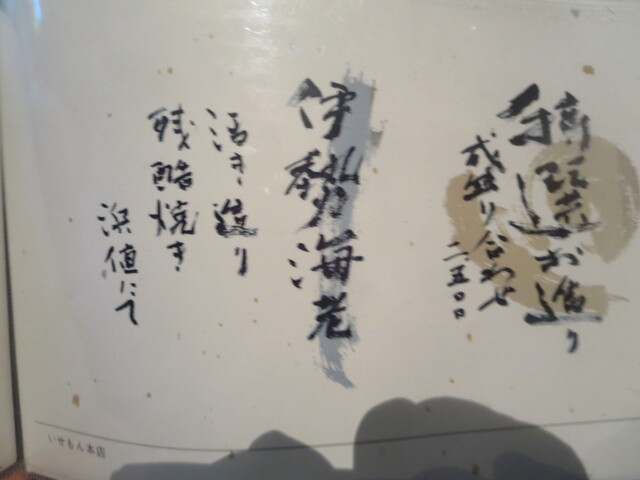 お造り
盛り合わせ
二、五〇〇
伊勢海老
活き造り
残酷焼き
浜値にて
いせもん本店